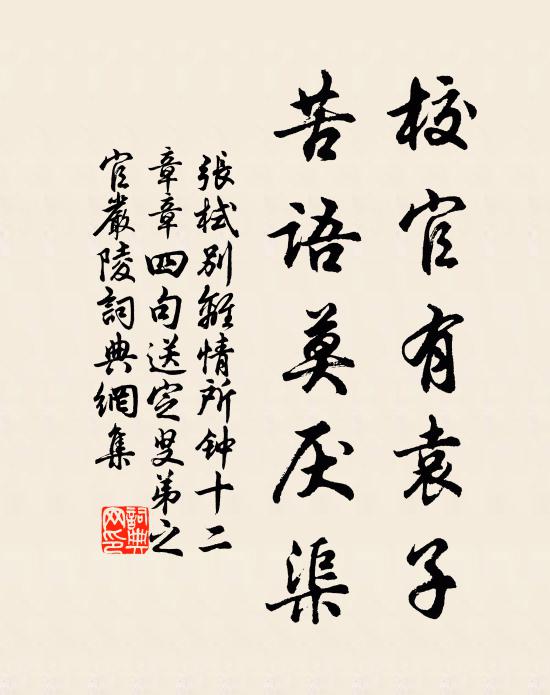 校官有袁子
苦語莫厌渠
張栻别離情所钟十二
章章四句送定叟弟之
官嚴陵詞典網集
詞典
网印